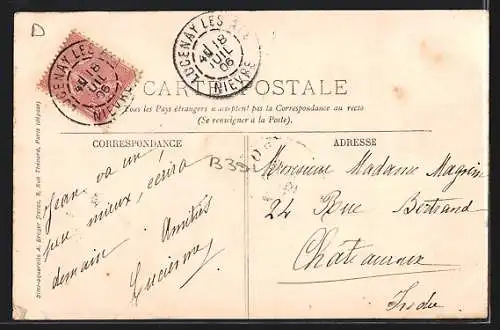 D
LUCENAY LES AIX
18
JUIL
06
NIEVRE
LUCENAY LES AIX
18
JUIL
06
NIEVRE
CARTE POSTALE
Tous les Pays étrangers n'acceptent pas la Correspondance au recto
(Se renseigner à la Poste).
CORRESPONDANCE
Jean va un
peu mieux, écrira
demain
Amitiés
Lucienne
B39
ADRESSE
Monsieur Madame
24 Rue Bertrand
Châteauroux
Indre
Simi-aquarelle A. Breger Frères, 9, Rue Thénard, Paris (déposé)